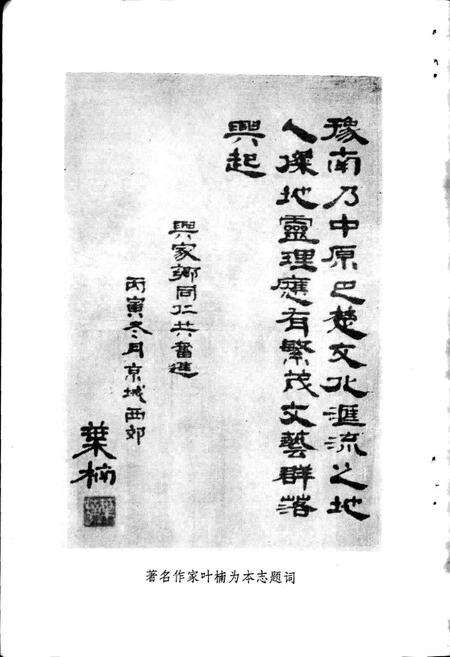 豫南乃中原巴楚文化滙流之地
人傑地靈理應有繁茂文藝群落
興起
與家鄉同仁共奮進
丙寅冬月京城西郊
葉楠
著名作家叶楠为本志题词